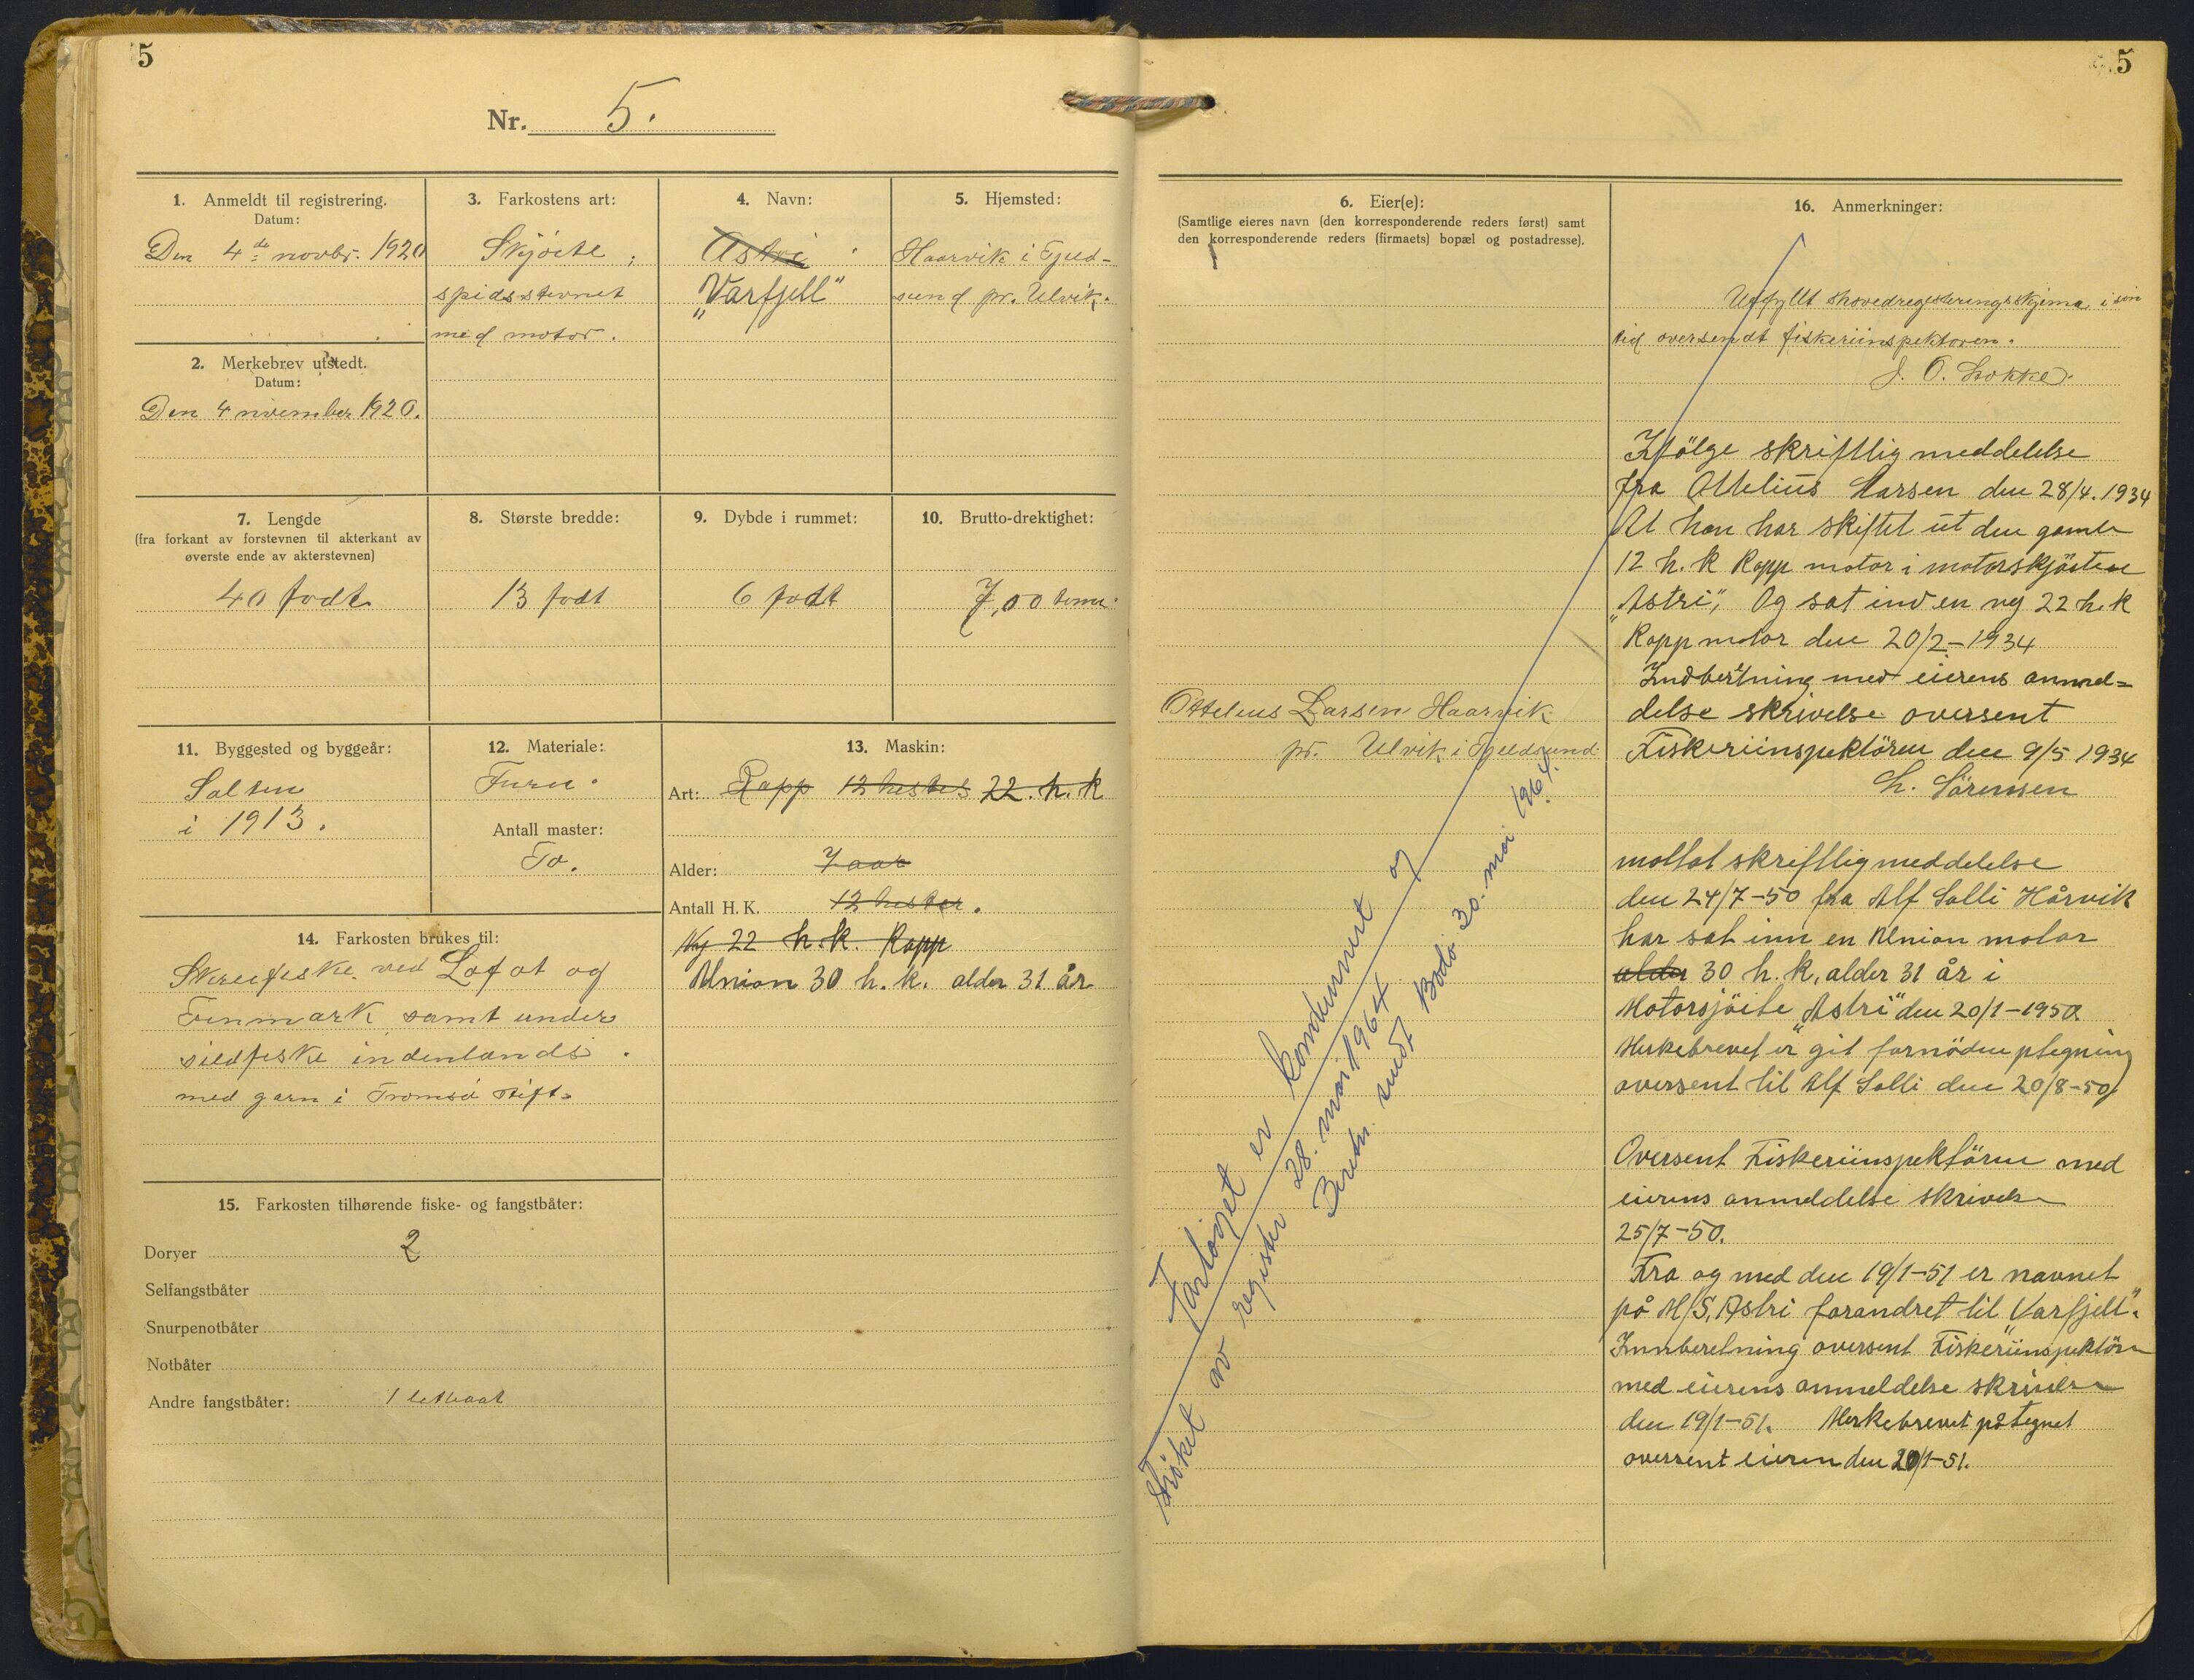 5
Nr. 5.
1. Anmeldt til registrering.
Datum:
Den 4de novbr. 1920
2. Merkebrev utstedt.
Datum:
Den 4 november 1920.
3. Farkostens art:
Skjöite,
spidsstevnet
med motor.
4. Navn:
Astri
"Varfjell"
5. Hjemsted:
Haarvik i Tjeld-
sund pr. Ulvik.
7. Lengde
(fra forkant av forstevnen til akterkant av
øverste ende av akterstevnen)
40 fodt
8. Største bredde:
13 fodt
9. Dybde i rummet:
6 fodt
10. Brutto-drektighet:
7,00 tons
11. Byggested og byggeår:
Salten
i 1913.
12. Materiale:
Furu.
Antall master:
To.
13. Maskin:
Art: Rapp 12 hesters 22. h. k
Alder: 7 aar
Antall H. K. 12 hester.
Ny 22 h.k. Rapp
Union 30 h. k. alder 31 år
14. Farkosten brukes til:
Skreifiske ved Lofot og
Finmark samt under
sildfiske indenlands.
med garn i Tromsö stift.
15. Farkosten tilhørende fiske- og fangstbåter:
Doryer 2
Selfangstbåter
Snurpenotbåter
Notbåter
Andre fangstbåter: 1 letbaat
5
6. Eier(e):
(Samtlige eieres navn (den korresponderende reders først) samt
den korresponderende reders (firmaets) bopæl og postadresse).
Ottelius Larsen Haarvik
pr. Ulvik i Tjeldsund
Fartöyet er kondemnert og
strøket av register 28. mai 1964
Beretn. sendt Bodö 30. mai 1964.
16. Anmerkninger:
Utfyllt hovedregisteringsskjema i sin
tid oversendt fiskeriinspektoren.
J. O. Lokke.
Ifölge skriftlig meddelelse
fra Ottelius Larsen den 28/4. 1934
At han har skiftet ut den gamle
12 h. k Rapp motor i motorskjöiten
"Astri", Og sat ind en ny 22 h. k
Rapp motor den 20/2-1934
Indberetning med eierens anmel=
delse skrivelse oversent
Fiskeriinspektören den 9/5 1934
L. Sörensen
mottat skriftlig meddelelse
den 24/7-50 fra Alf Solli Hårvik
har sat inn en Union motor
alder 30 h. k, alder 31 år i
Motorsjöite "Astri" den 20/1-1950
Merkebrevet er git fornöden ptegning
oversent til Alf Solli den 20/8-50
Oversent Fiskeriinspektören med
eierens anmeldelse skrivelse
25/7-50.
Fra og med den 19/1-51 er navnet
på M/S, Astri forandret til "Varfjell".
Innberetning oversent Fiskeriinspektören
med eierens anmeldelse skrivelse
den 19/1-51. Merkebrevet påtegnet
oversent eieren den 20/1-51.